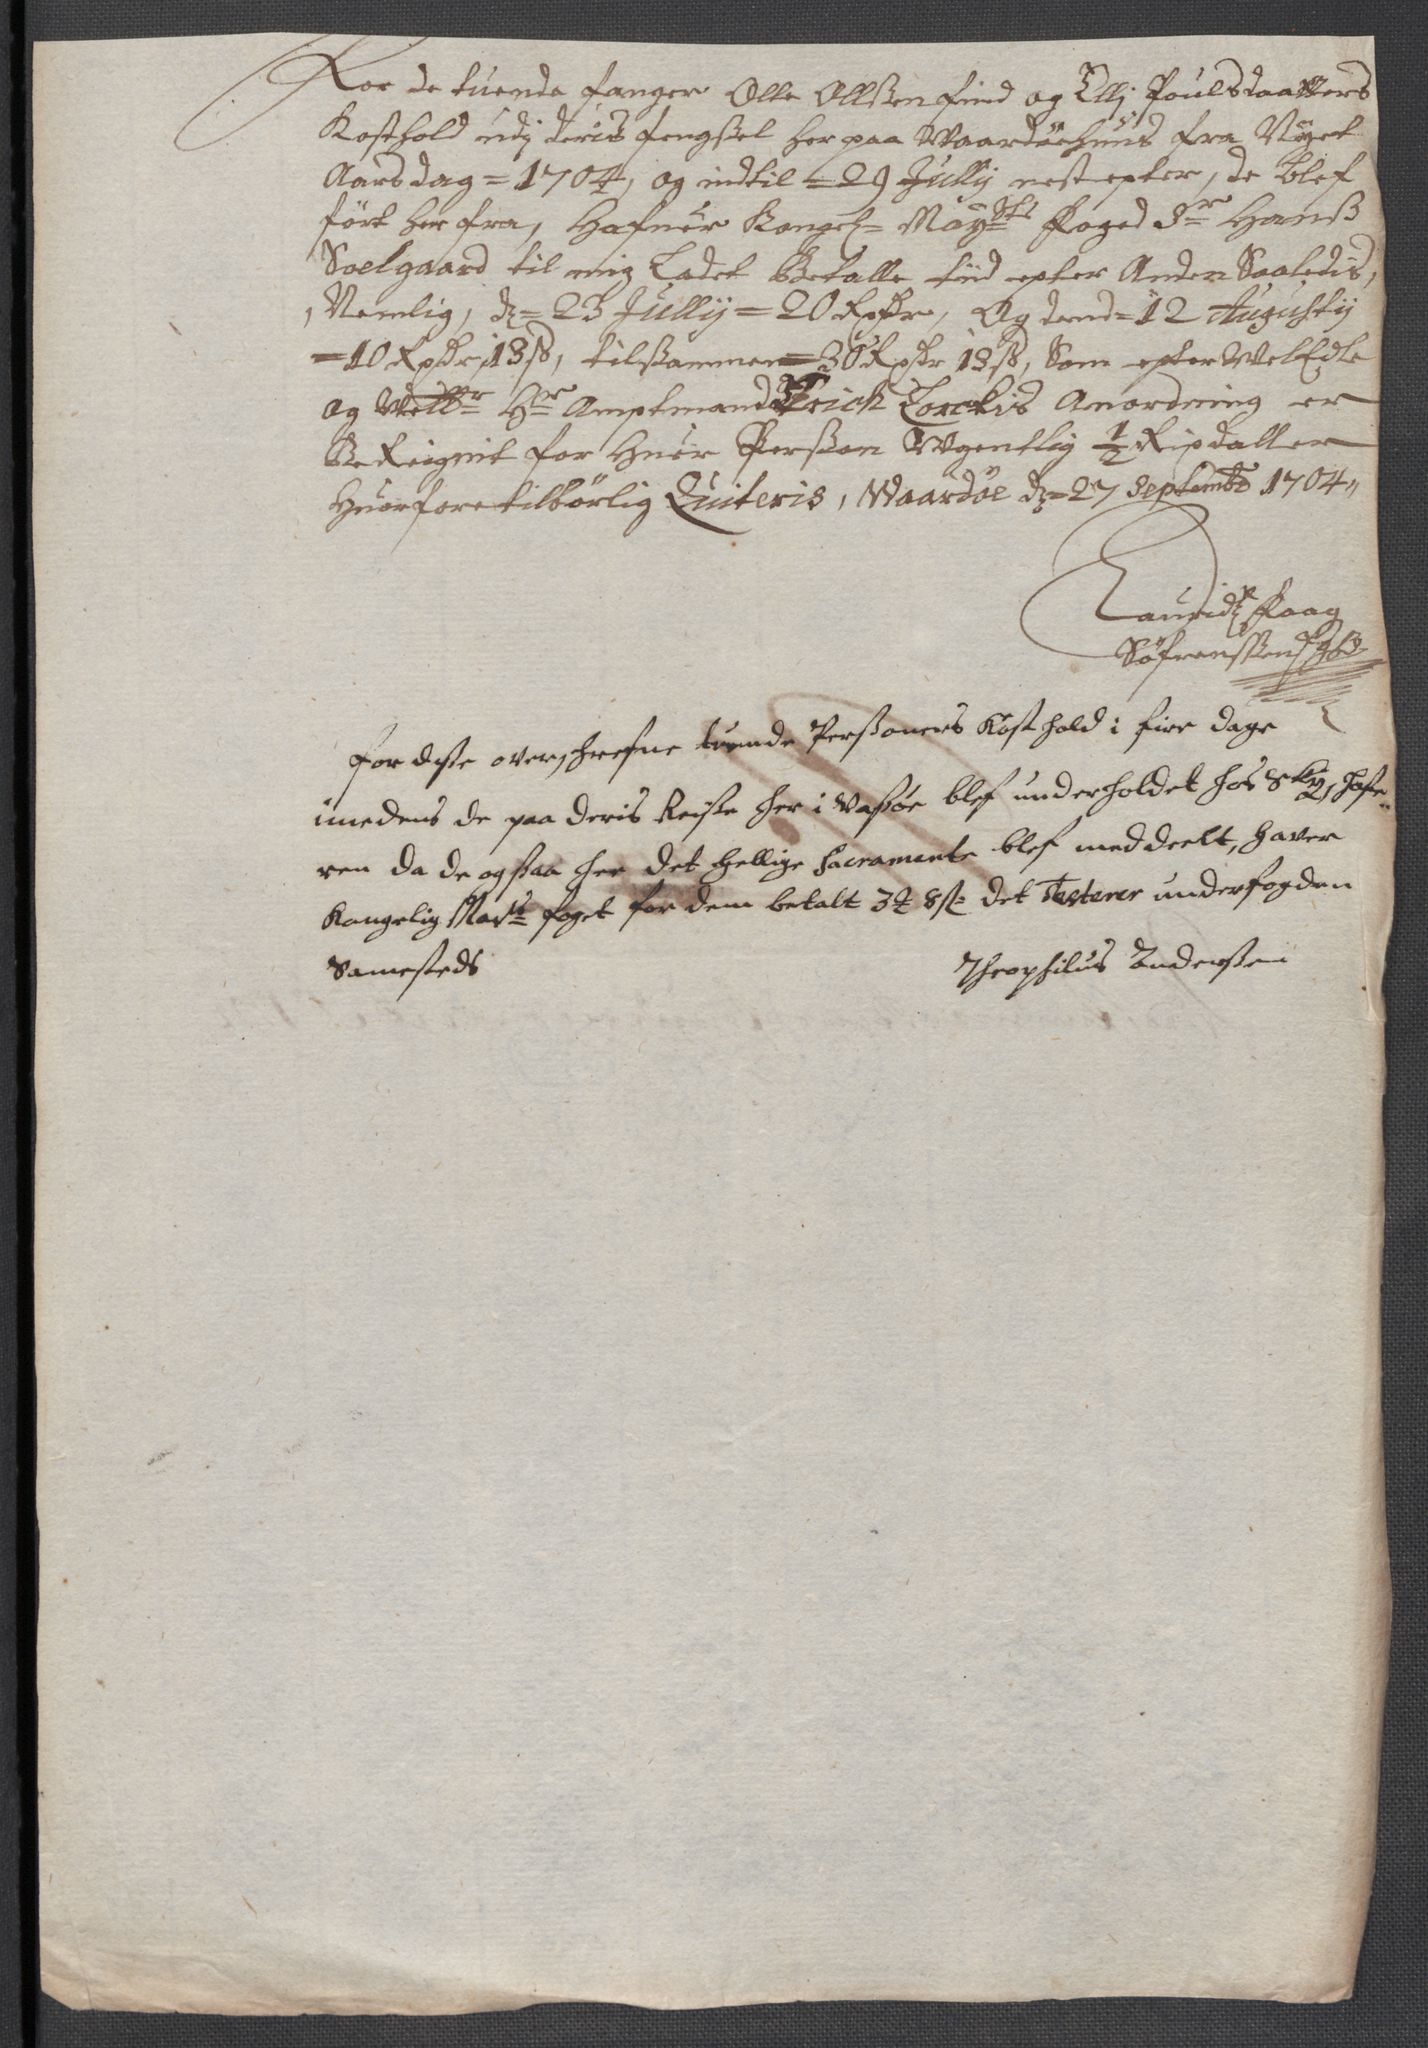 For de tuende fanger Olle Ollßen find og Ellj Poulsdaatters
Kosthold udj deris fengßel her paa Waardøehuus fra Nyet
Aars dag = 1704, og indtil = 29 Jullij nest epter, de blef
ført her fra, Hafuer Kongel= May^ts Foged S^r Hanß
Soelgaard til mig Ladet Betalle tiid epter Anden Saaledis,
Nemlig, d= 23 Jullij = 20 Rixdr, Og dend = 12 Augustij
= 10 Rixdr 18 ß, tilßammen = 30 Rixdr 18 ß, Som epter WelEdle
og Welb^r H^r Amptmand Erich Lorchis Anordning er
Bereignit for Huer Perßon Wgentlig ½ Rixdaller
Huorfore tilbørlig Quiteris, Waardøe d= 27 Septembr 1704
Lauridz Paag
Søfrenßen
for diße ofverschrefne tuende Perßoners Kosthold i fire dage
imedens de paa deris Reiße her i Vaßøe blef underholdet hos
ren da de ogsaa her det hellige Sacramente blef meddeelt, haver
Kongelig May^ts foget for dem betalt 3 8 ß det Testerer underfogden
Samesteds Theophilus Anderßen